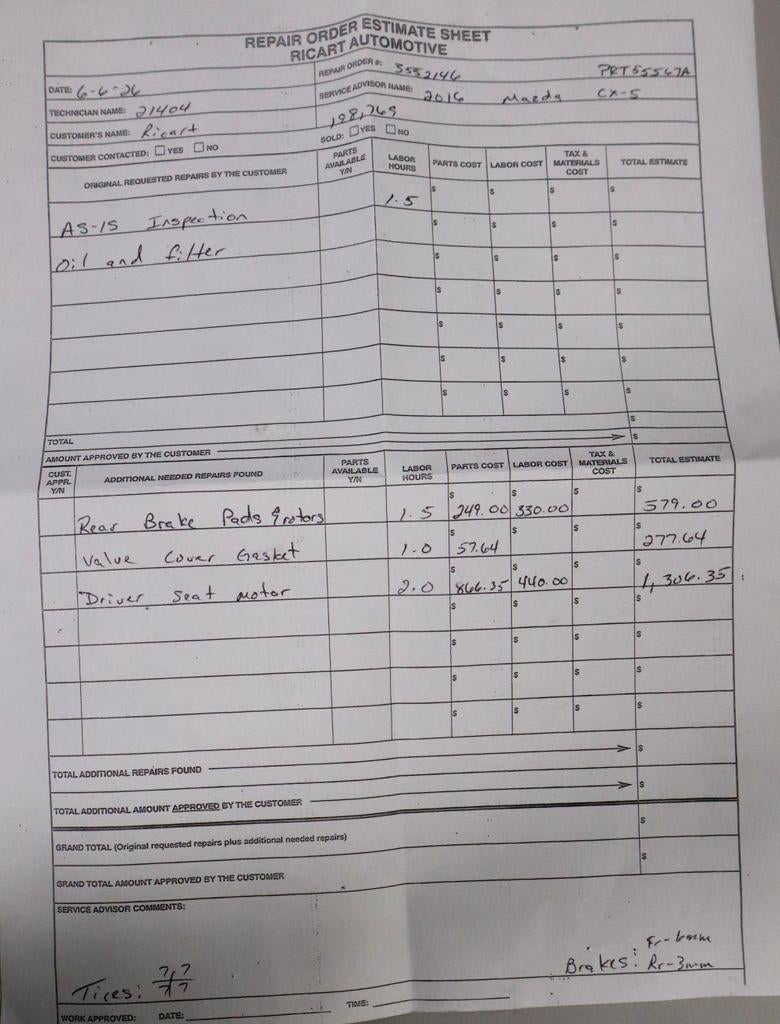 REPAIR ORDER ESTIMATE SHEET
RICART AUTOMOTIVE
DATE: 6-6-26 REPAIR ORDER #: 3552146 PRT55567A
TECHNICIAN NAME: 21404 SERVICE ADVISOR NAME: 2016 Mazda CX-5
CUSTOMER'S NAME: Ricart 198,769
CUSTOMER CONTACTED: ☐ YES ☐ NO SOLD: ☐ YES ☐ NO
ORIGINAL REQUESTED REPAIRS BY THE CUSTOMER PARTS AVAILABLE Y/N LABOR HOURS PARTS COST LABOR COST TAX & MATERIALS COST TOTAL ESTIMATE
AS-IS Inspection 1.5 $ $ $ $
Oil and filter $ $ $ $
$ $ $ $
$ $ $ $
$ $ $ $
$ $ $ $
$ $ $ $
TOTAL $
AMOUNT APPROVED BY THE CUSTOMER $
CUST. APPR. Y/N ADDITIONAL NEEDED REPAIRS FOUND PARTS AVAILABLE Y/N LABOR HOURS PARTS COST LABOR COST TAX & MATERIALS COST TOTAL ESTIMATE
Rear Brake Pads & rotors 1.5 $249.00 $330.00 $ $579.00
Value Cover Gasket 1.0 $57.64 $ $ $277.64
Driver Seat motor 2.0 $866.35 $440.00 $ $1,306.35
$ $ $ $
$ $ $ $
$ $ $ $
$ $ $ $
TOTAL ADDITIONAL REPAIRS FOUND $
TOTAL ADDITIONAL AMOUNT APPROVED BY THE CUSTOMER $
GRAND TOTAL (Original requested repairs plus additional needed repairs) $
GRAND TOTAL AMOUNT APPROVED BY THE CUSTOMER $
SERVICE ADVISOR COMMENTS:
Tires: 7,7 / 7 7
Brakes: Fr-6mm
Rr-3mm
WORK APPROVED: DATE: TIME: